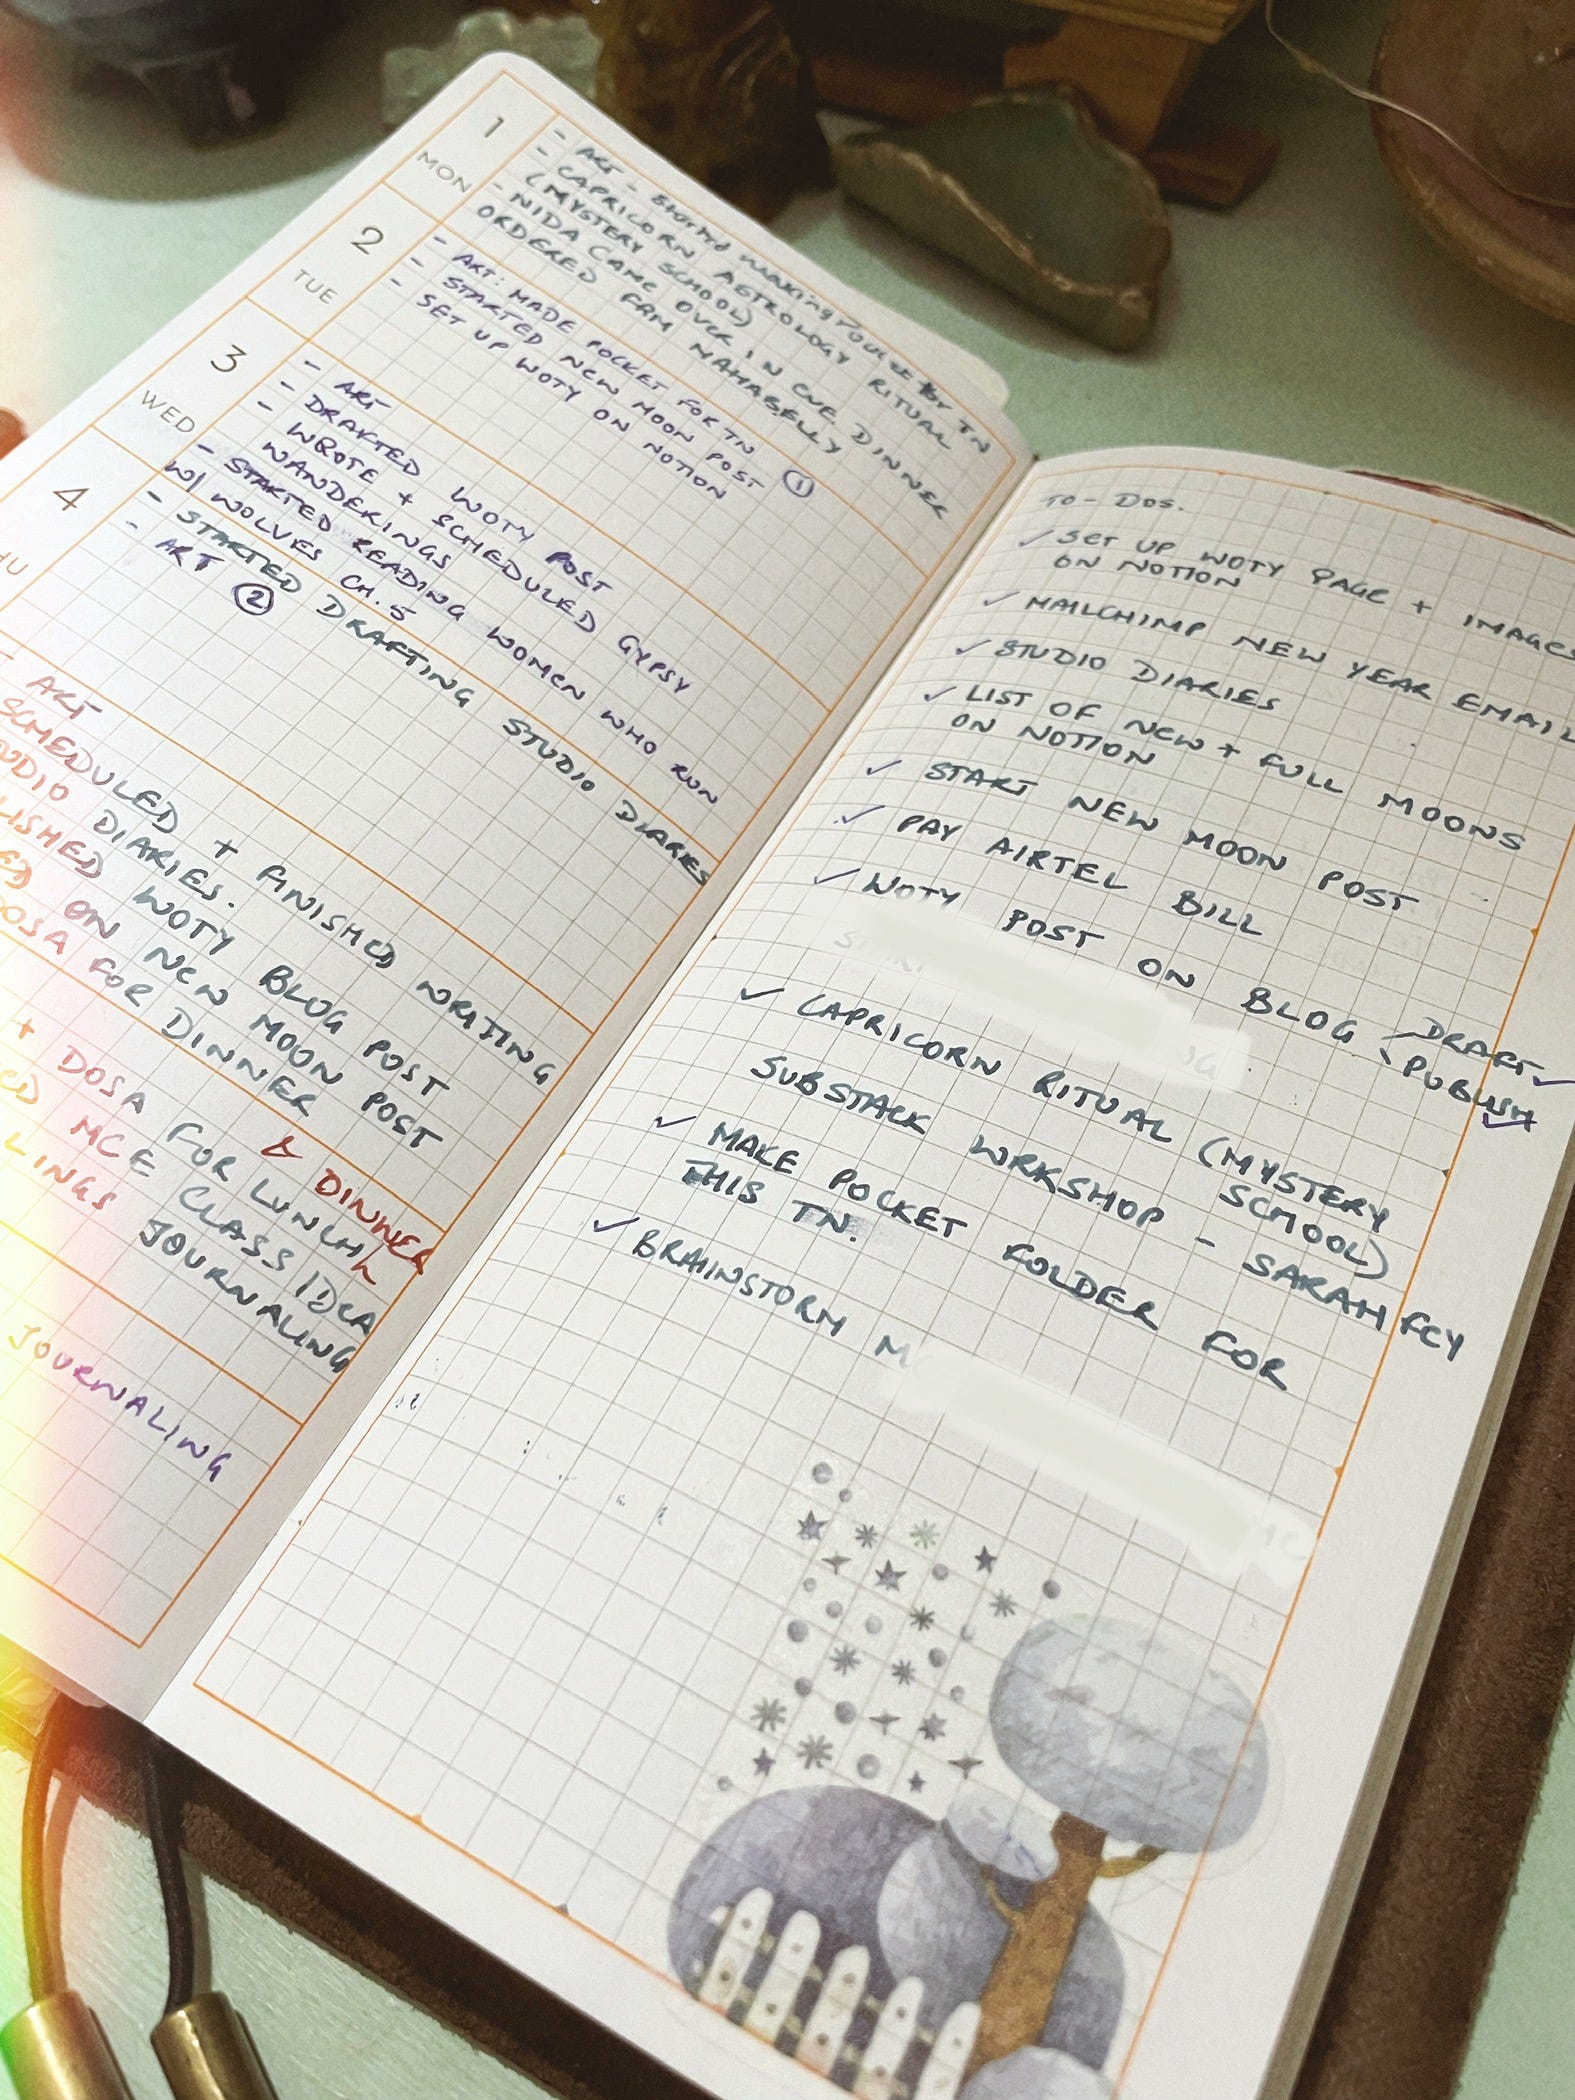 1
MON
- ART - Started making
- CAPRICORN ASTROLOGY RITUAL
(MYSTERY SCHOOL)
- NIDA CAME OVER IN EVE. DINNER
ORDERED FRM MAHABELLY
2
TUE
- ART: MADE POCKET FOR TN ①
- STARTED NEW MOON POST
- SET UP WOTY ON NOTION
3
WED
- ART
- DRAFTED WOTY POST
- WROTE + SCHEDULED GYPSY
WANDERINGS
- STARTED READING WOMEN WHO RUN
W/ WOLVES CH. 5
- STARTED DRAFTING STUDIO DIARIES
- ART ②
4
HU
ART
SCHEDULED + FINISHED WRITING
UDIO DIARIES.
LISHED WOTY BLOG POST
ED ON NEW MOON POST
DOSA FOR DINNER
+ DOSA FOR LUNCH & DINNER
MCE CLASS IDEA
LINGS JOURNALING
JOURNALING
TO-DOS.
✓ SET UP WOTY PAGE + IMAGES
ON NOTION
✓ MAILCHIMP NEW YEAR EMAIL
✓ STUDIO DIARIES
✓ LIST OF NEW + FULL MOONS
ON NOTION
✓ START NEW MOON POST
✓ PAY AIRTEL BILL
✓ WOTY POST ON BLOG DRAFT ✓
PUBLISH ✓
✓ CAPRICORN RITUAL (MYSTERY
SCHOOL)
SUBSTACK WRKSHOP - SARAH FCY
✓ MAKE POCKET FOLDER FOR
THIS TN.
✓ BRAINSTORM M